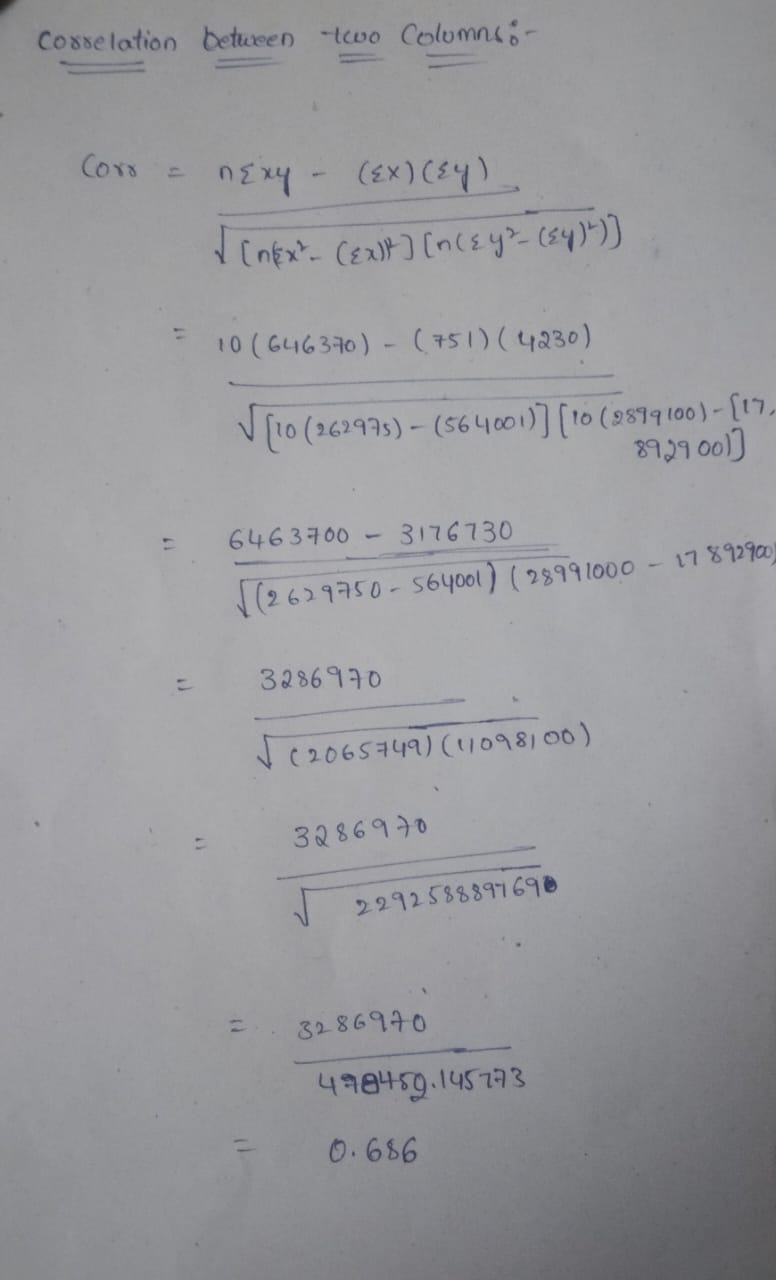 Correlation between two Columns:-
Corr = nΣxy - (Σx)(Σy)
√[nΣx²- (Σx)²] [n(Σy²- (Σy)²)]
= 10(646370) - (751)(4230)
√[10(262975) - (564001)] [10(2899100) - [17,
892900)]
= 6463700 - 3176730
√(2629750 - 564001) (28991000 - 17892900)
= 3286970
√(2065749)(11098100)
= 3286970
√ 2292588897690
= 3286970
.145773
= 0.686